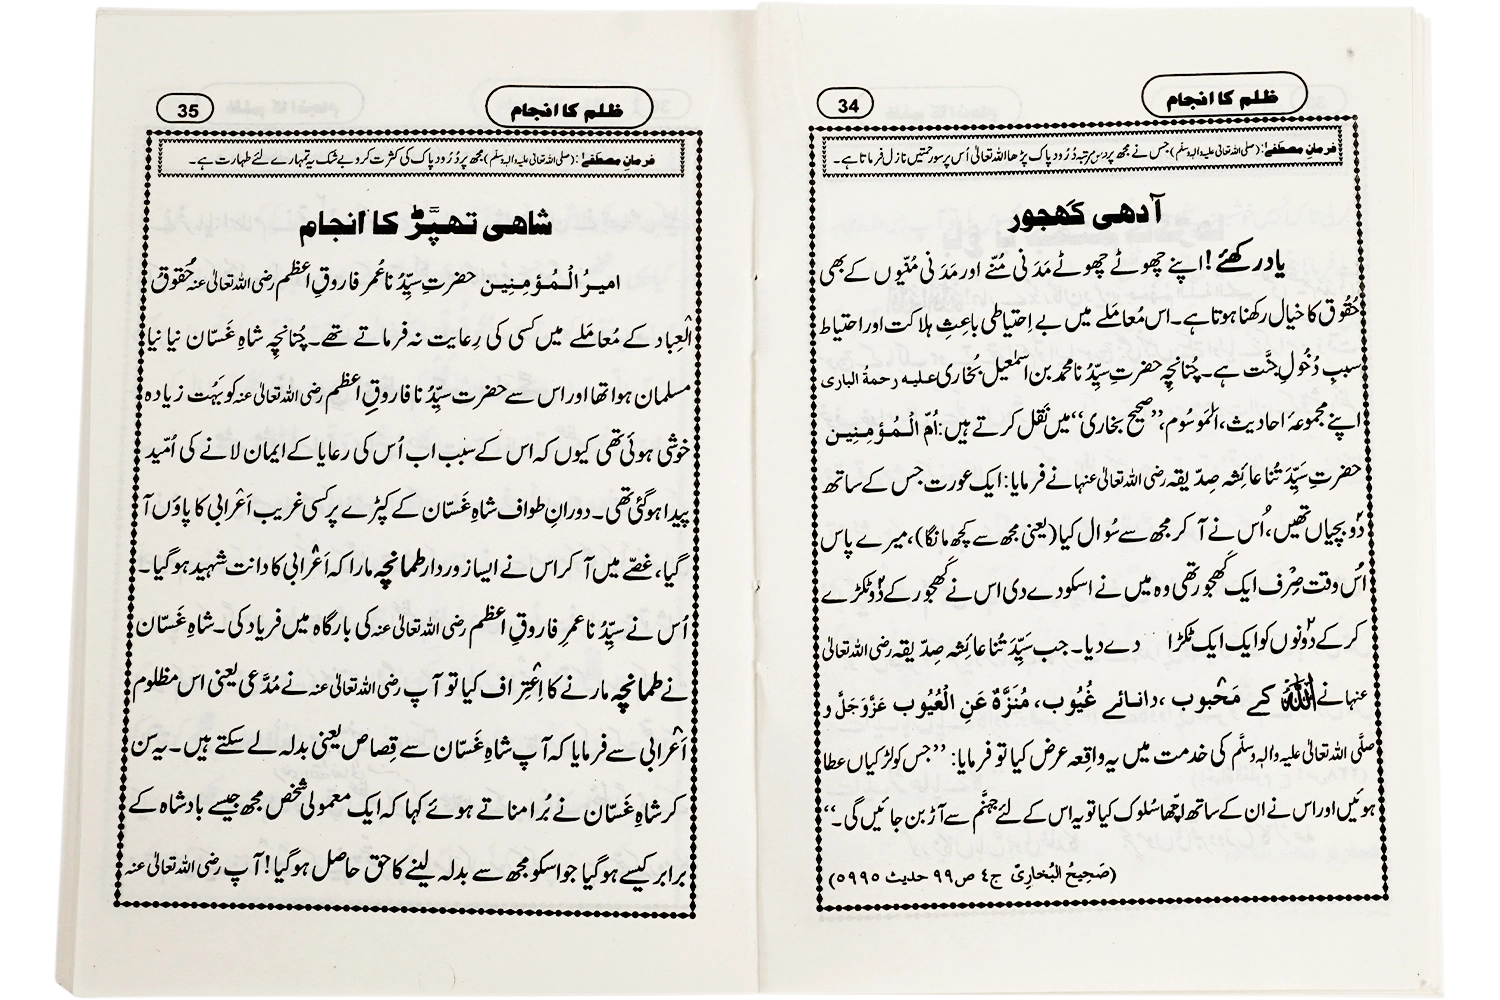 ظلم کا انجام
34
فرمانِ مصطفےٰ: (صلی اللہ تعالیٰ علیہ والہٖ وسلم) جس نے مجھ پر دس مرتبہ دُرُود پاک پڑھا اللہ تعالیٰ اُس پر سو رحمتیں نازل فرماتا ہے۔
آدھی کَھجور
یاد رکھئے! اپنے چھوٹے چھوٹے مَدَنی مُنّے اور مَدَنی مُنّیوں کے بھی
حُقُوق کا خیال رکھنا ہوتا ہے۔ اس مُعامَلے میں بے اِحتیاطی باعِثِ ہلاکت اور احتیاط
سببِ دُخُولِ جنّت ہے۔ چُنانچِہ حضرتِ سیِّدُنا محمد بن اسمٰعیل بُخاری علیہ رحمۃ الباری
اپنے مجموعۂ احادیث، اَلْمَوسُوم، ”صحیح بخاری“ میں نَقْل کرتے ہیں: اُمّ الْمُؤمِنِین
حضرتِ سَیِّدَتُنا عائِشہ صِدّیقہ رضی اللہ تعالیٰ عنہا نے فرمایا: ایک عورت جس کے ساتھ
دو بچیاں تھیں، اُس نے آ کر مجھ سے سُوال کیا (یعنی مجھ سے کچھ مانگا)، میرے پاس
اُس وقت صِرْف ایک کَھجور تھی وہ میں نے اسکو دے دی اس نے کَھجور کے دو ٹکڑے
کر کے دونوں کو ایک ایک ٹکڑا دے دیا۔ جب سَیِّدَتُنا عائِشہ صِدّیقہ رضی اللہ تعالیٰ
عنہا نے اللہ کے مَحْبوب، دانائے غُیُوب، مُنَزَّہٌ عَنِ الْعُیُوب عَزَّوَجَلَّ و
صلَّی اللہ تعالیٰ علیہ والہٖ وسلَّم کی خدمت میں یہ واقِعہ عرض کیا تو فرمایا: ”جس کو لڑکیاں عطا
ہوئیں اور اس نے ان کے ساتھ اچّھا سُلوک کیا تو یہ اس کے لئے جہنَّم سے آڑ بن جائیں گی۔“
(صَحِیحُ البُخارِیّ ج٤ ص٩٩ حدیث ٥٩٩٥)
ظلم کا انجام
35
فرمانِ مصطفےٰ: (صلی اللہ تعالیٰ علیہ والہٖ وسلم) مجھ پر دُرُود پاک کی کثرت کرو بے شک یہ تمہارے لئے طہارت ہے۔
شاھی تھپَّڑ کا انجام
امیرُ الْمُؤمِنِین حضرتِ سیِّدُنا عُمر فاروقِ اعظم رضی اللہ تعالیٰ عنہ حُقُوقُ
الْعِباد کے مُعامَلے میں کسی کی رِعایت نہ فرماتے تھے۔ چُنانچِہ شاہِ غَسّان نیا نیا
مسلمان ہوا تھا اور اس سے حضرت سیِّدُنا فاروقِ اعظم رضی اللہ تعالیٰ عنہ کو بَہُت زیادہ
خوشی ہوئی تھی کیوں کہ اس کے سبب اب اُس کی رعایا کے ایمان لانے کی اُمّید
پیدا ہو گئی تھی۔ دورانِ طواف شاہِ غَسّان کے کپڑے پر کسی غریب اَعْرابی کا پاؤں آ
گیا، غصّے میں آ کر اس نے ایسا زور دار طمانچہ مارا کہ اَعْرابی کا دانت شہید ہو گیا۔
اُس نے سیِّدُنا عمرِ فاروقِ اعظم رضی اللہ تعالیٰ عنہ کی بارگاہ میں فریاد کی۔ شاہِ غَسّان
نے طمانچہ مارنے کا اِعْتِراف کیا تو آپ رضی اللہ تعالیٰ عنہ نے مُدَّعی یعنی اس مظلوم
اَعْرابی سے فرمایا کہ آپ شاہِ غَسّان سے قِصاص یعنی بدلہ لے سکتے ہیں۔ یہ سن
کر شاہِ غَسّان نے بُرا مناتے ہوئے کہا کہ ایک معمولی شخص مجھ جیسے بادشاہ کے
برابر کیسے ہو گیا جو اسکو مجھ سے بدلہ لینے کا حق حاصل ہو گیا! آپ رضی اللہ تعالیٰ عنہ